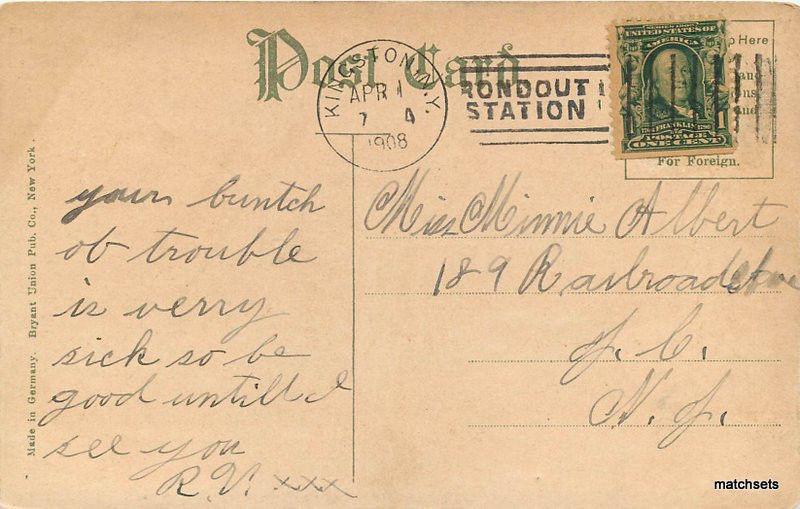 Post Card
KINGSTON N.Y.
APR 1
7 A
1908
RONDOUT
STATION
SERIES 1902
UNITED STATES OF
AMERICA
FRANKLIN
POSTAGE
1 ONE CENT 1
Here
For Foreign.
your buntch
ob trouble
is verry
sick so be
good untill I
see you
R.V. xxx
Miss Minnie Albert
189 Railroad Ave
J. C.
N. J.
Made in Germany. Bryant Union Pub. Co., New York.
matchsets